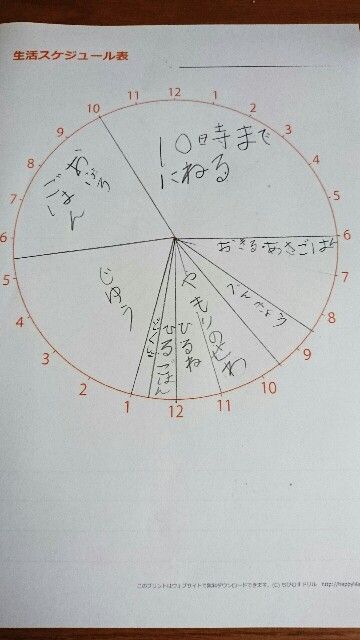 生活スケジュール表
12
1
2
3
4
5
6
7
8
9
10
11
12
1
2
3
4
5
6
7
8
9
10
11
10時まで
にねる
おきる・あさごはん
べんきょう
やもりのせわ
ひるね
ひるごはん
じゆう
おふろ
ごはん
このプリントはウェブサイトで無料ダウンロードできます。(C) ちびむすドリル